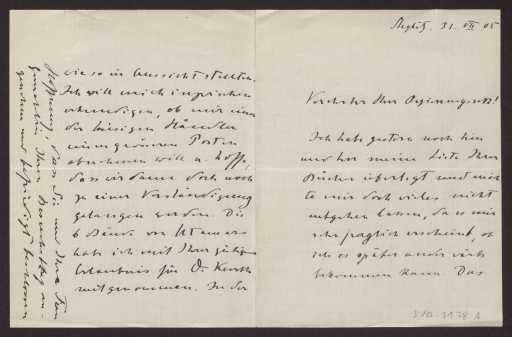 Steglitz, 31. VII 05
Verehrter Herr Regierungsrat!
Ich habe gestern noch hier
und her meine Liste Ihrer
Bücher überlegt und möch-
te mir doch vieles nicht
entgehen lassen, da es mir
sehr fraglich erscheint, ob
ich es später anderwärts
bekommen kann. Das
wie so in Aussicht stellten.
Ich will mich inzwischen
erkundigen, ob mir einer
der hiesigen Händler
einen größeren Posten
abnehmen will u. hoffe,
dass wir dann doch noch
zu einer Verständigung
gelangen werden. Die
6 Bände von Utamaro
habe ich mit Ihrer gütigen
Erlaubnis für Dr. Kurth
mitgenommen. In der
Hoffnung, dass Sie und Ihre Frau
Gemahlin Ihren
und